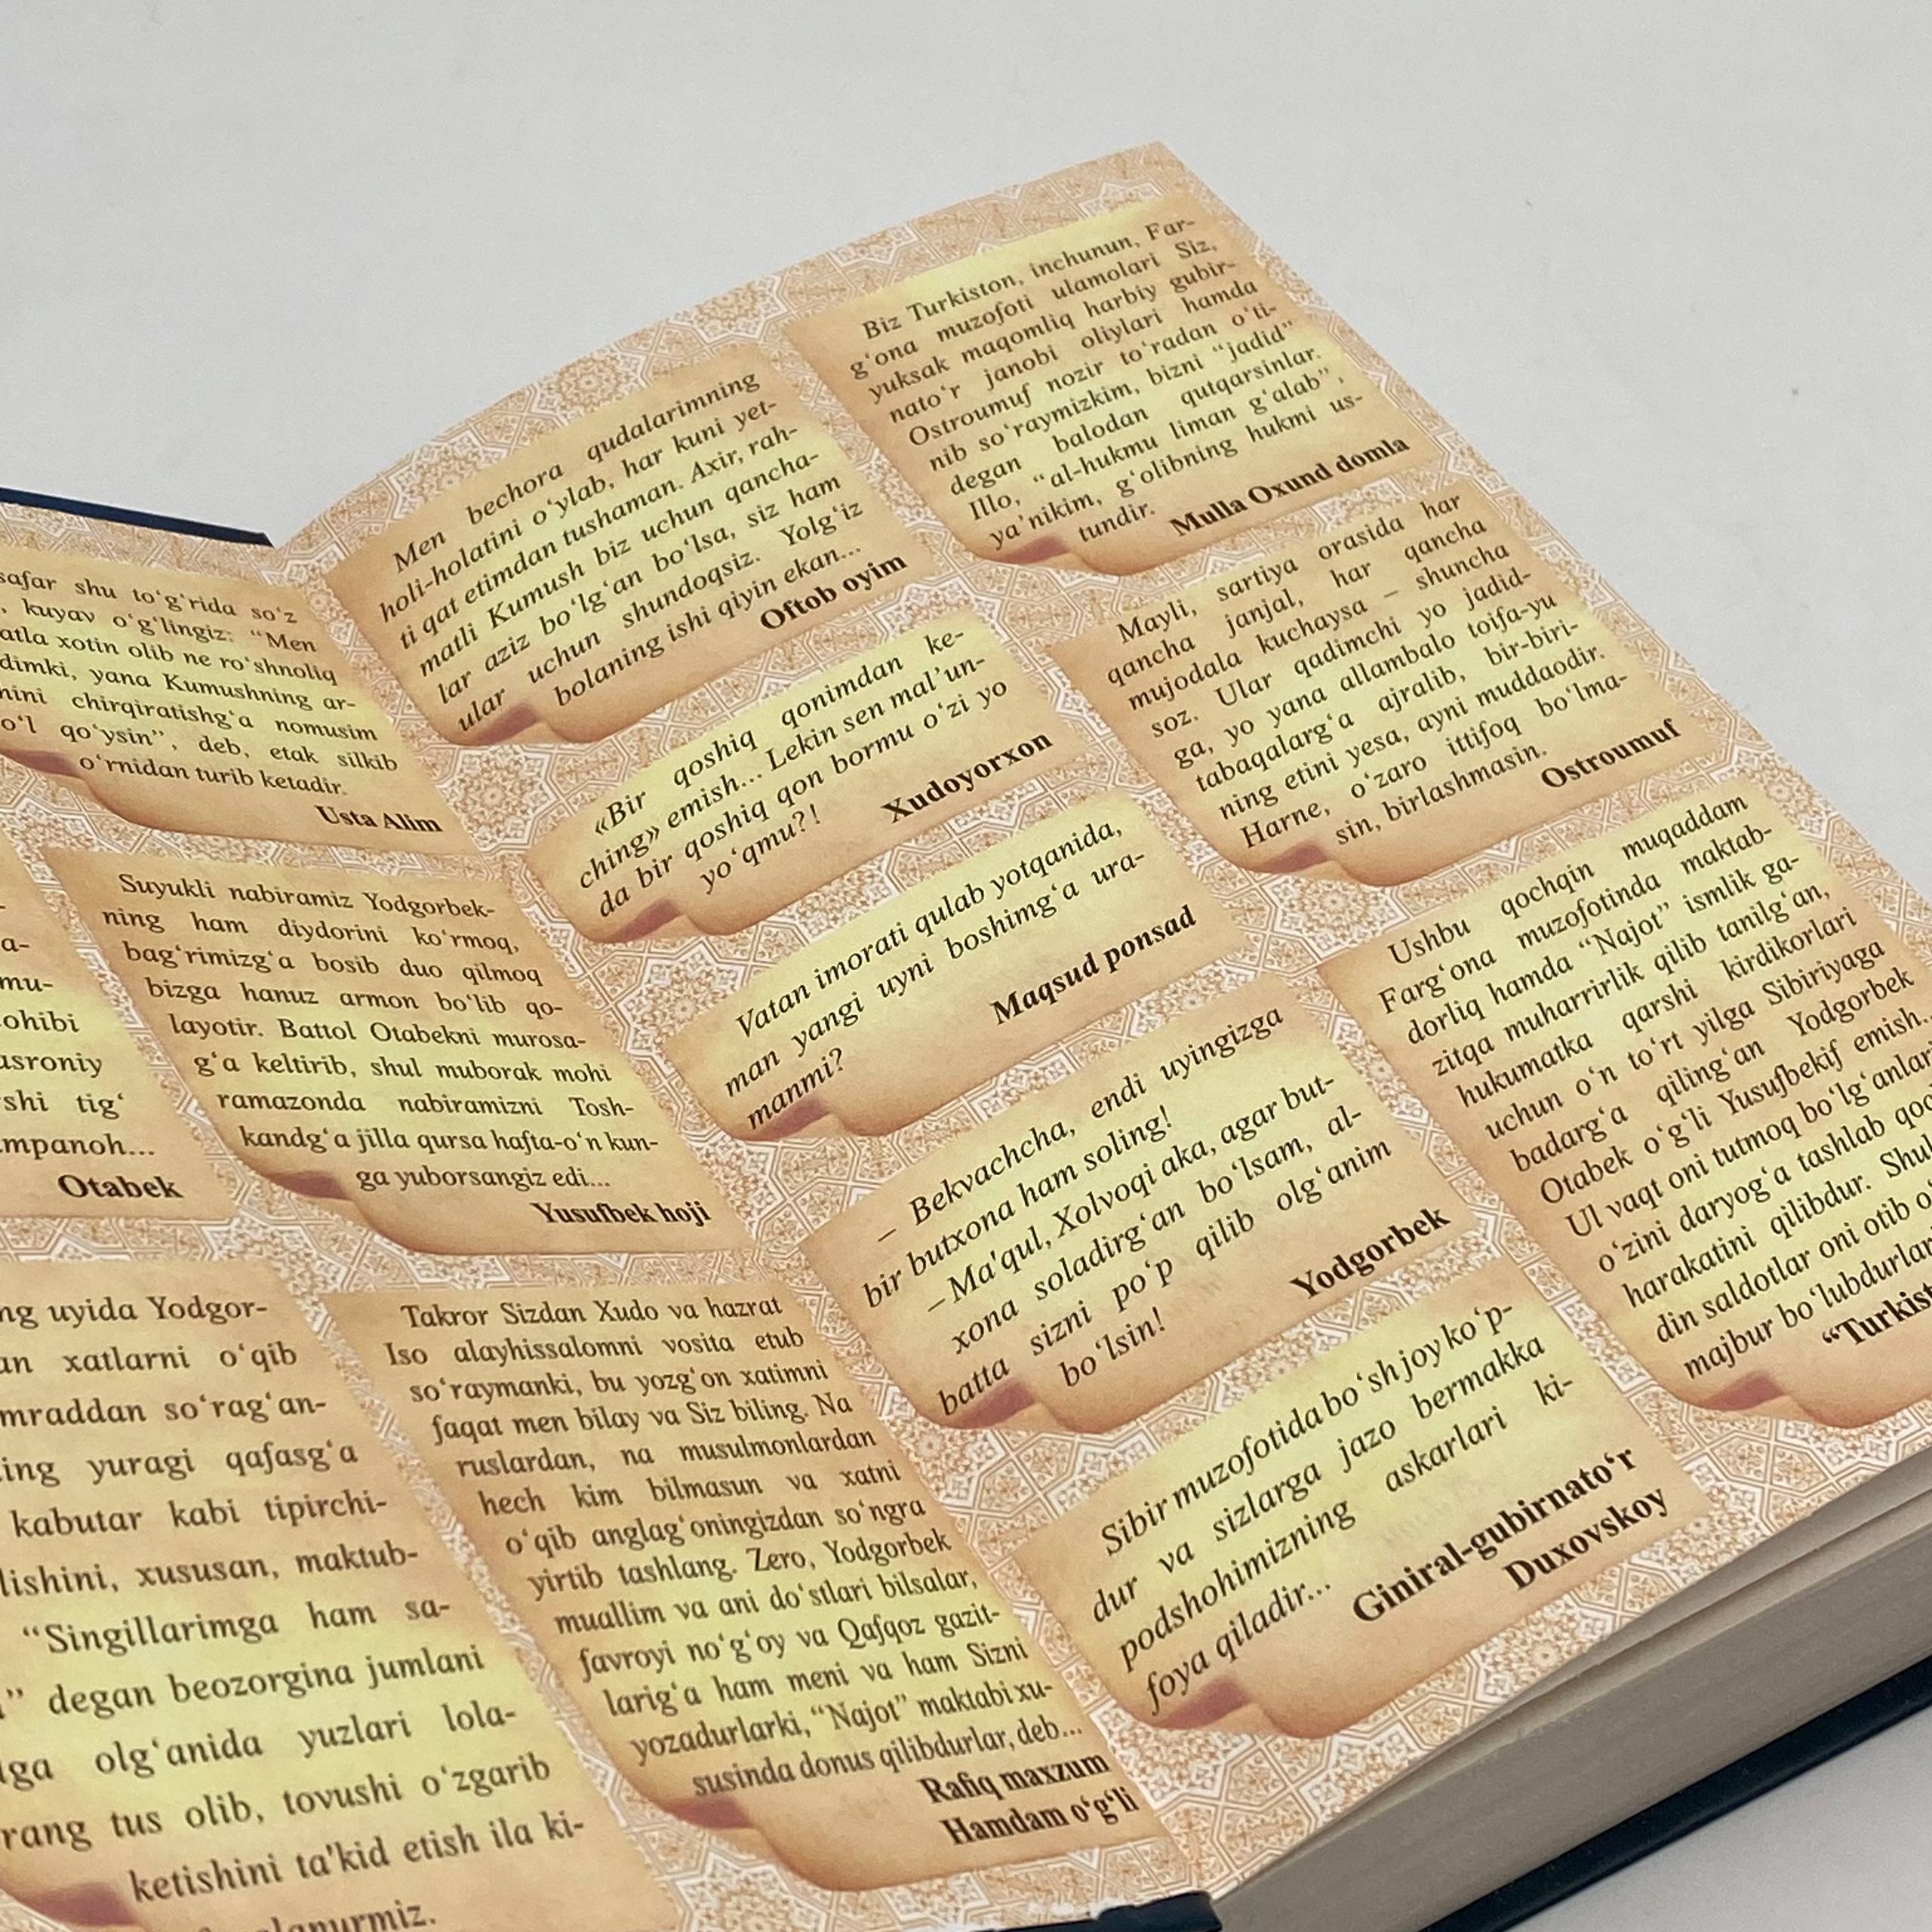 safar shu to‘g‘rida so‘z
kuyav o‘g‘lingiz: “Men
xotin olib ne ro‘shnoliq
yana Kumushning ar-
chirqiratishg‘a nomusim
qo‘ysin”, deb, etak silkib
o‘rnidan turib ketadir.
Usta Alim
a-
mu-
tig‘
Otabek
Suyukli nabiramiz Yodgorbek-
ning ham diydorini ko‘rmoq,
bag‘rimizg‘a bosib duo qilmoq
bizga hanuz armon bo‘lib qo-
layotir. Battol Otabekni murosa-
g‘a keltirib, shul muborak mohi
ramazonda nabiramizni Tosh-
kandg‘a jilla qursa hafta-o‘n kun-
ga yuborsangiz edi...
Yusufbek hoji
uyida Yodgor-
xatlarni o‘qib
so‘rag‘an-
yuragi qafasg‘a
kabutar kabi tipirchi-
xususan, maktub-
“Singillarimga ham sa-
degan beozorgina jumlani
olg‘anida yuzlari lola-
rang tus olib, tovushi o‘zgarib
ketishini ta'kid etish ila ki-
Takror Sizdan Xudo va hazrat
Iso alayhissalomni vosita etub
so‘raymanki, bu yozg‘on xatimni
faqat men bilay va Siz biling. Na
ruslardan, na musulmonlardan
hech kim bilmasun va xatni
o‘qib anglag‘oningizdan so‘ngra
yirtib tashlang. Zero, Yodgorbek
muallim va ani do‘stlari bilsalar,
favroyi no‘g‘oy va Qafqoz gazit-
larig‘a ham meni va ham Sizni
yozadurlarki, “Najot” maktabi xu-
susinda donus qilibdurlar, deb...
Rafiq maxzum
Hamdam o‘g‘li
Men bechora qudalarimning
holi-holatini o‘ylab, har kuni yet-
ti qat etimdan tushaman. Axir, rah-
matli Kumush biz uchun qancha-
lar aziz bo‘lg‘an bo‘lsa, siz ham
ular uchun shundoqsiz. Yolg‘iz
bolaning ishi qiyin ekan...
Oftob oyim
«Bir qoshiq qonimdan ke-
ching» emish... Lekin sen mal’un-
da bir qoshiq qon bormu o‘zi yo
yo‘qmu?!
Xudoyorxon
Vatan imorati qulab yotqanida,
man yangi uyni boshimg‘a ura-
manmi?
Maqsud ponsad
– Bekvachcha, endi uyingizga
bir butxona ham soling!
– Ma'qul, Xolvoqi aka, agar but-
xona soladirg‘an bo‘lsam, al-
batta sizni po‘p qilib olg‘anim
bo‘lsin!
Yodgorbek
Sibir muzofotida bo‘sh joy ko‘p-
dur va sizlarga jazo bermakka
podshohimizning askarlari ki-
foya qiladir...
Giniral-gubirnato‘r
Duxovskoy
Biz Turkiston, inchunun, Far-
g‘ona muzofoti ulamolari Siz,
yuksak maqomliq harbiy gubir-
nato‘r janobi oliylari hamda
Ostroumuf nozir to‘radan o‘ti-
nib so‘raymizkim, bizni “jadid”
degan balodan qutqarsinlar.
Illo, “al-hukmu liman g‘alab”,
ya’nikim, g‘olibning hukmi us-
tundir.
Mulla Oxund domla
Mayli, sartiya orasida har
qancha janjal, har qancha
mujodala kuchaysa – shuncha
soz. Ular qadimchi yo jadid-
ga, yo yana allambalo toifa-yu
tabaqalarg‘a ajralib, bir-biri-
ning etini yesa, ayni muddaodir.
Harne, o‘zaro ittifoq bo‘lma-
sin, birlashmasin.
Ostroumuf
Ushbu qochqin muqaddam
Farg‘ona muzofotinda maktab-
dorliq hamda “Najot” ismlik ga-
zitqa muharrirlik qilib tanilg‘an,
hukumatka qarshi kirdikorlari
uchun o‘n to‘rt yilga Sibiriyaga
badarg‘a qiling‘an Yodgorbek
Otabek o‘g‘li Yusufbekif emish...
Ul vaqt oni tutmoq bo‘lg‘anlari
o‘zini daryog‘a tashlab
harakatini qilibdur.
din saldotlar oni otib
majbur bo‘lubdurlar